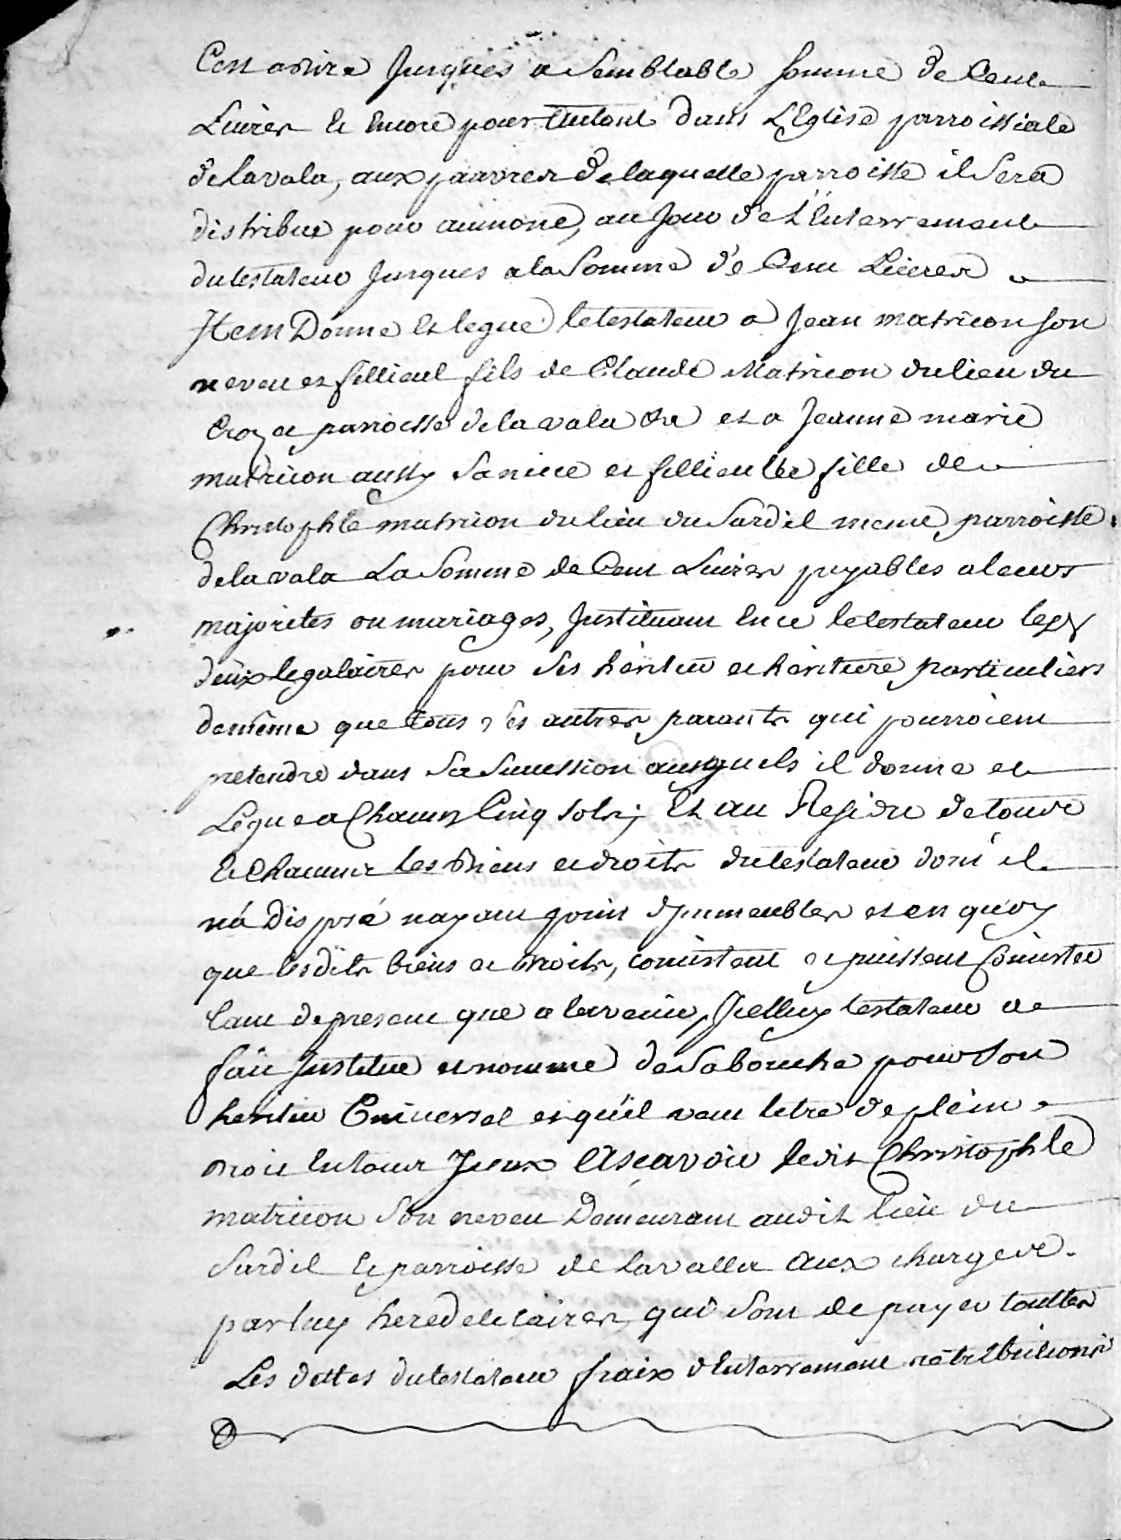 C'est adire Jusques a Semblable somme de Cent
Livres et Encore pour Autant dans L'Eglise parroissiale
de lavala, aux pauvres de laquelle parroisse il Sera
distribue pour aumone, au Jour de L'Enterrement
du testateur Jusques a la Somme de Cent Livres
Item Donne Et legue le testateur a Jean matricon son
neveu et fillieul fils de Claude Matricon du lieu du
parroisse de la vala et a Jeanne marie
matricon aussy Sa niece et fillieulle fille de
Christophle matricon du lieu du Sardil meme parroisse
de la vala La Somme de Cent Livres payables a leurs
majorites ou mariages, Instituant En ce le testateur les
deux legataires pour ses heritier et heritiere particuliers
de meme que tous ses autres parants qui pourroient
pretendre dans Sa Succession ausquels il donne et
Legue a Chacun Cinq sols; Et au Residu de tous
et Chacuns Les Biens et droits du testateur dont il
n'a disposé nayant point d'Immeubles et en quoy
que lesdits biens et droits, consistent et puissent Consister
tant de present que a lavenir, Icelluy testateur a
fait Institue et nomme de Sa bouche pour Son
heritier Universel et qu'il veut letre de plein
droit En tout Iceux Ascavoir ledit Christophle
matricon Son neveu Demeurant audit lieu du
Sardil et parroisse de Lavalla Aux charges
par luy hereditaires, qui Sont de payer touttes
Les dettes du testateur fraix d'Enterrement retributions